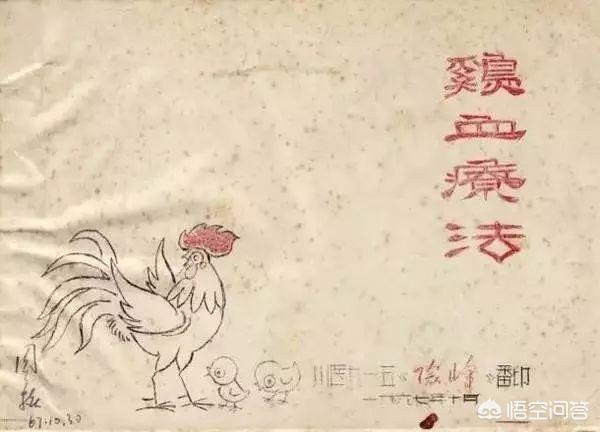 鷄血療法
川医九一五«险峰»番印
一九六七年十月
67.10.30
悟空问答